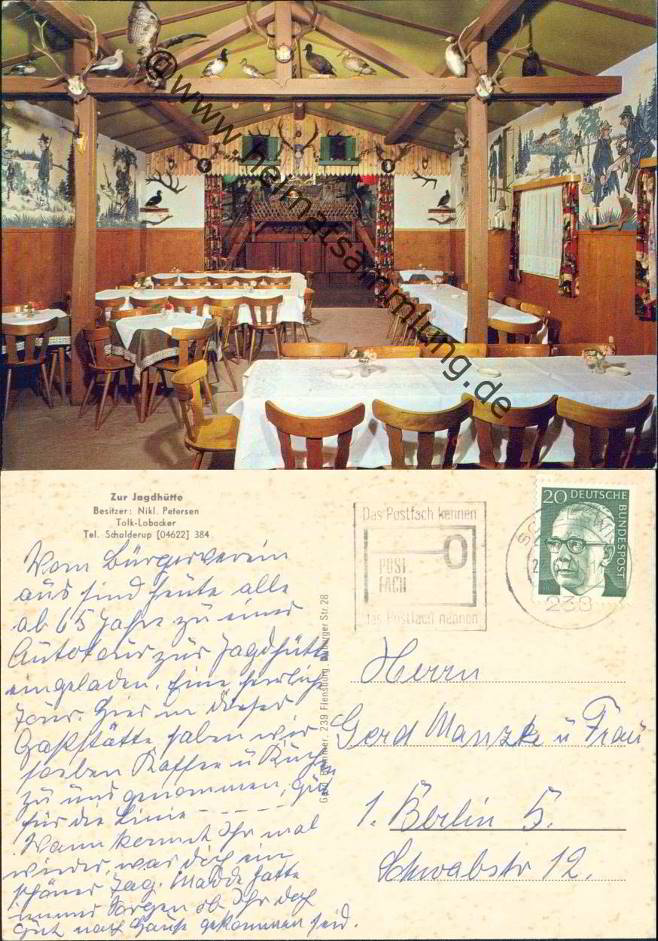 © www.heimatsammlung.de
Zur Jagdhütte
Besitzer: Nikl. Petersen
Tolk-Lobacker
Tel. Schalderup [04622] 384
Vom Bürgerverein
aus sind heute alle
ab 65 Jahre zu einer
Autotour zur Jagdhütte
eingeladen. Eine herrliche
Tour. Hier in dieser
Gaststätte haben wir
soeben Kaffee u Kuchen
zu uns genommen, gut
für die Linie
Wann kommt Ihr mal
wieder, war doch ein
schöner Tag. hatte
immer Sorgen ob Ihr doch
gut nach Hause gekommen seid.
239 Flensburg Str. 28
Das Postfach kennen
POST
FACH
das Postfach nennen
20 DEUTSCHE
BUNDESPOST
238
Herrn
Gerd Manzke u Frau
1. Berlin 5.
Schwabstr 12.